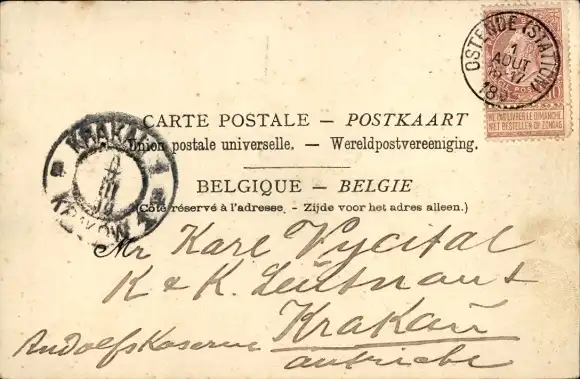 OSTENDE (STATION)
1
AOUT
NE PAS LIVRER LE DIMANCHE
NIET BESTELLEN OP ZONDAG
CARTE POSTALE — POSTKAART
Union postale universelle. — Wereldpostvereeniging.
BELGIQUE — BELGIE
(Côté réservé à l'adresse. - Zijde voor het adres alleen.)
KRAKAU 1
KRAKÓW
Mr Karl Vycital
K & K. Leutnant
Krakau
Rudolfskaserne
autriche